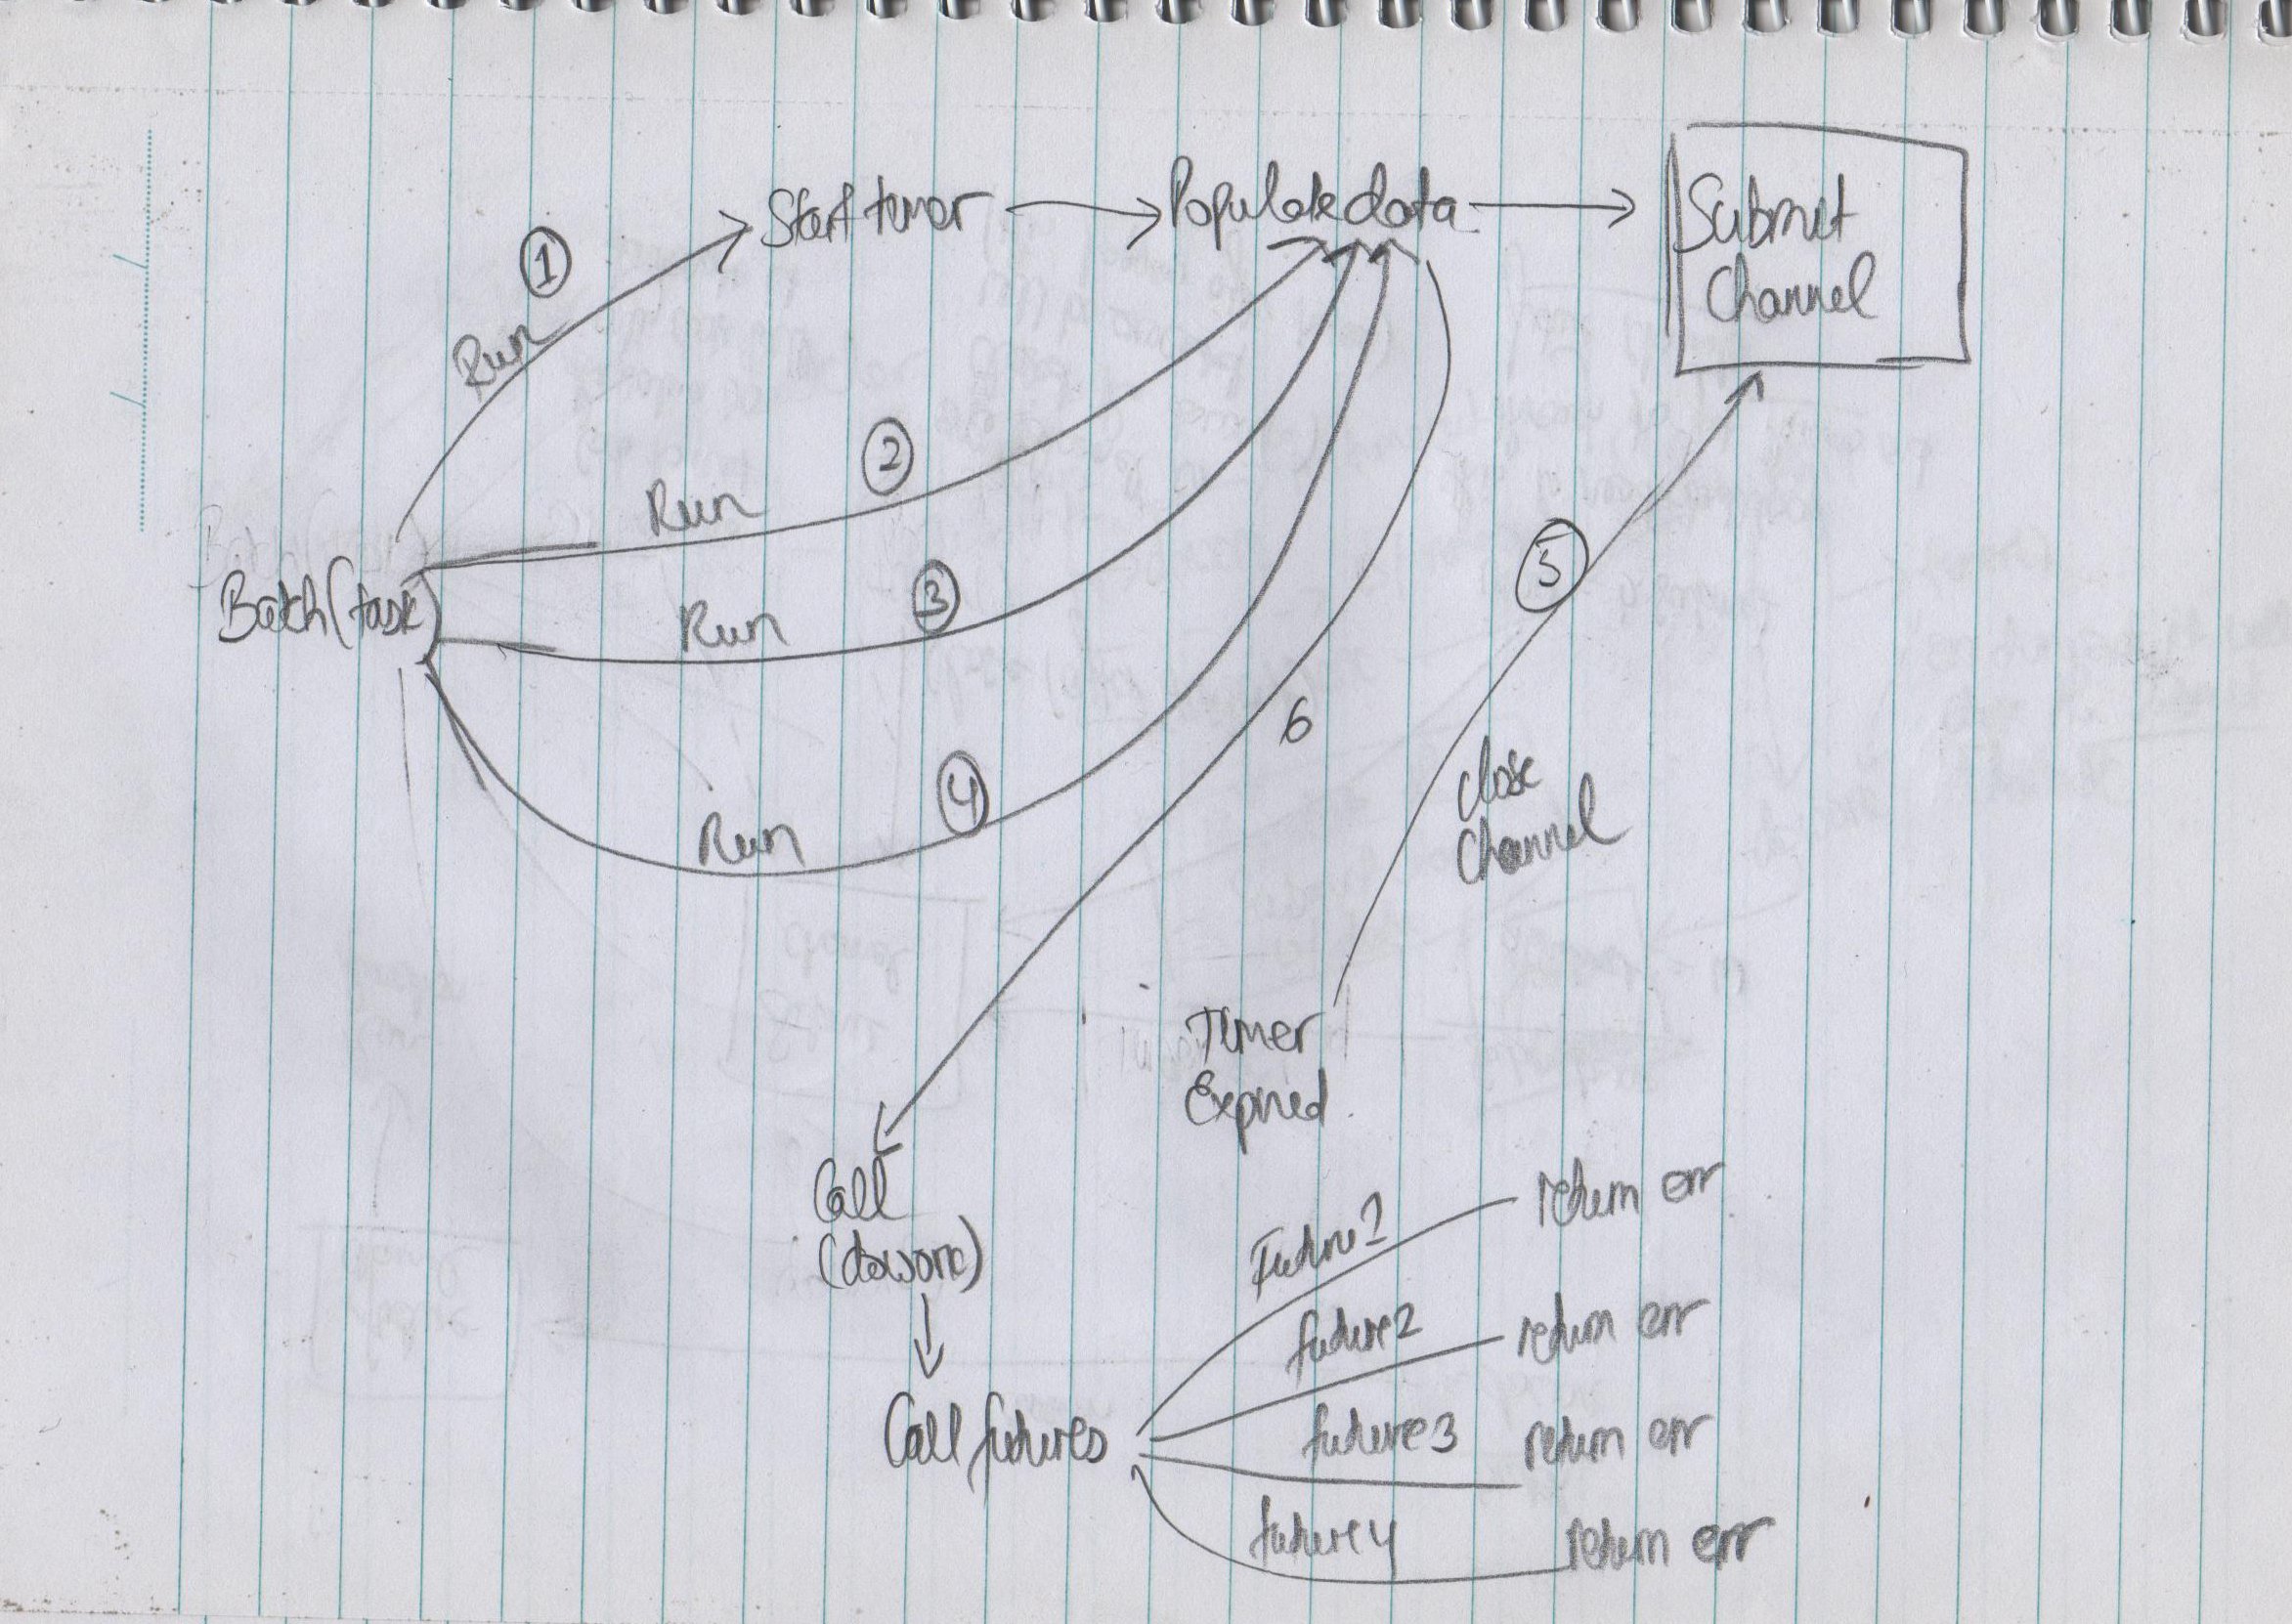 Start timer
Populate data
Submit
Channel
1
Run
2
Run
Batch(task)
3
Run
4
Run
5
6
close
Channel
Timer
Expired
Call
(dowork)
Call futures
Future1
return err
future2
return err
future3
return err
future4
return err